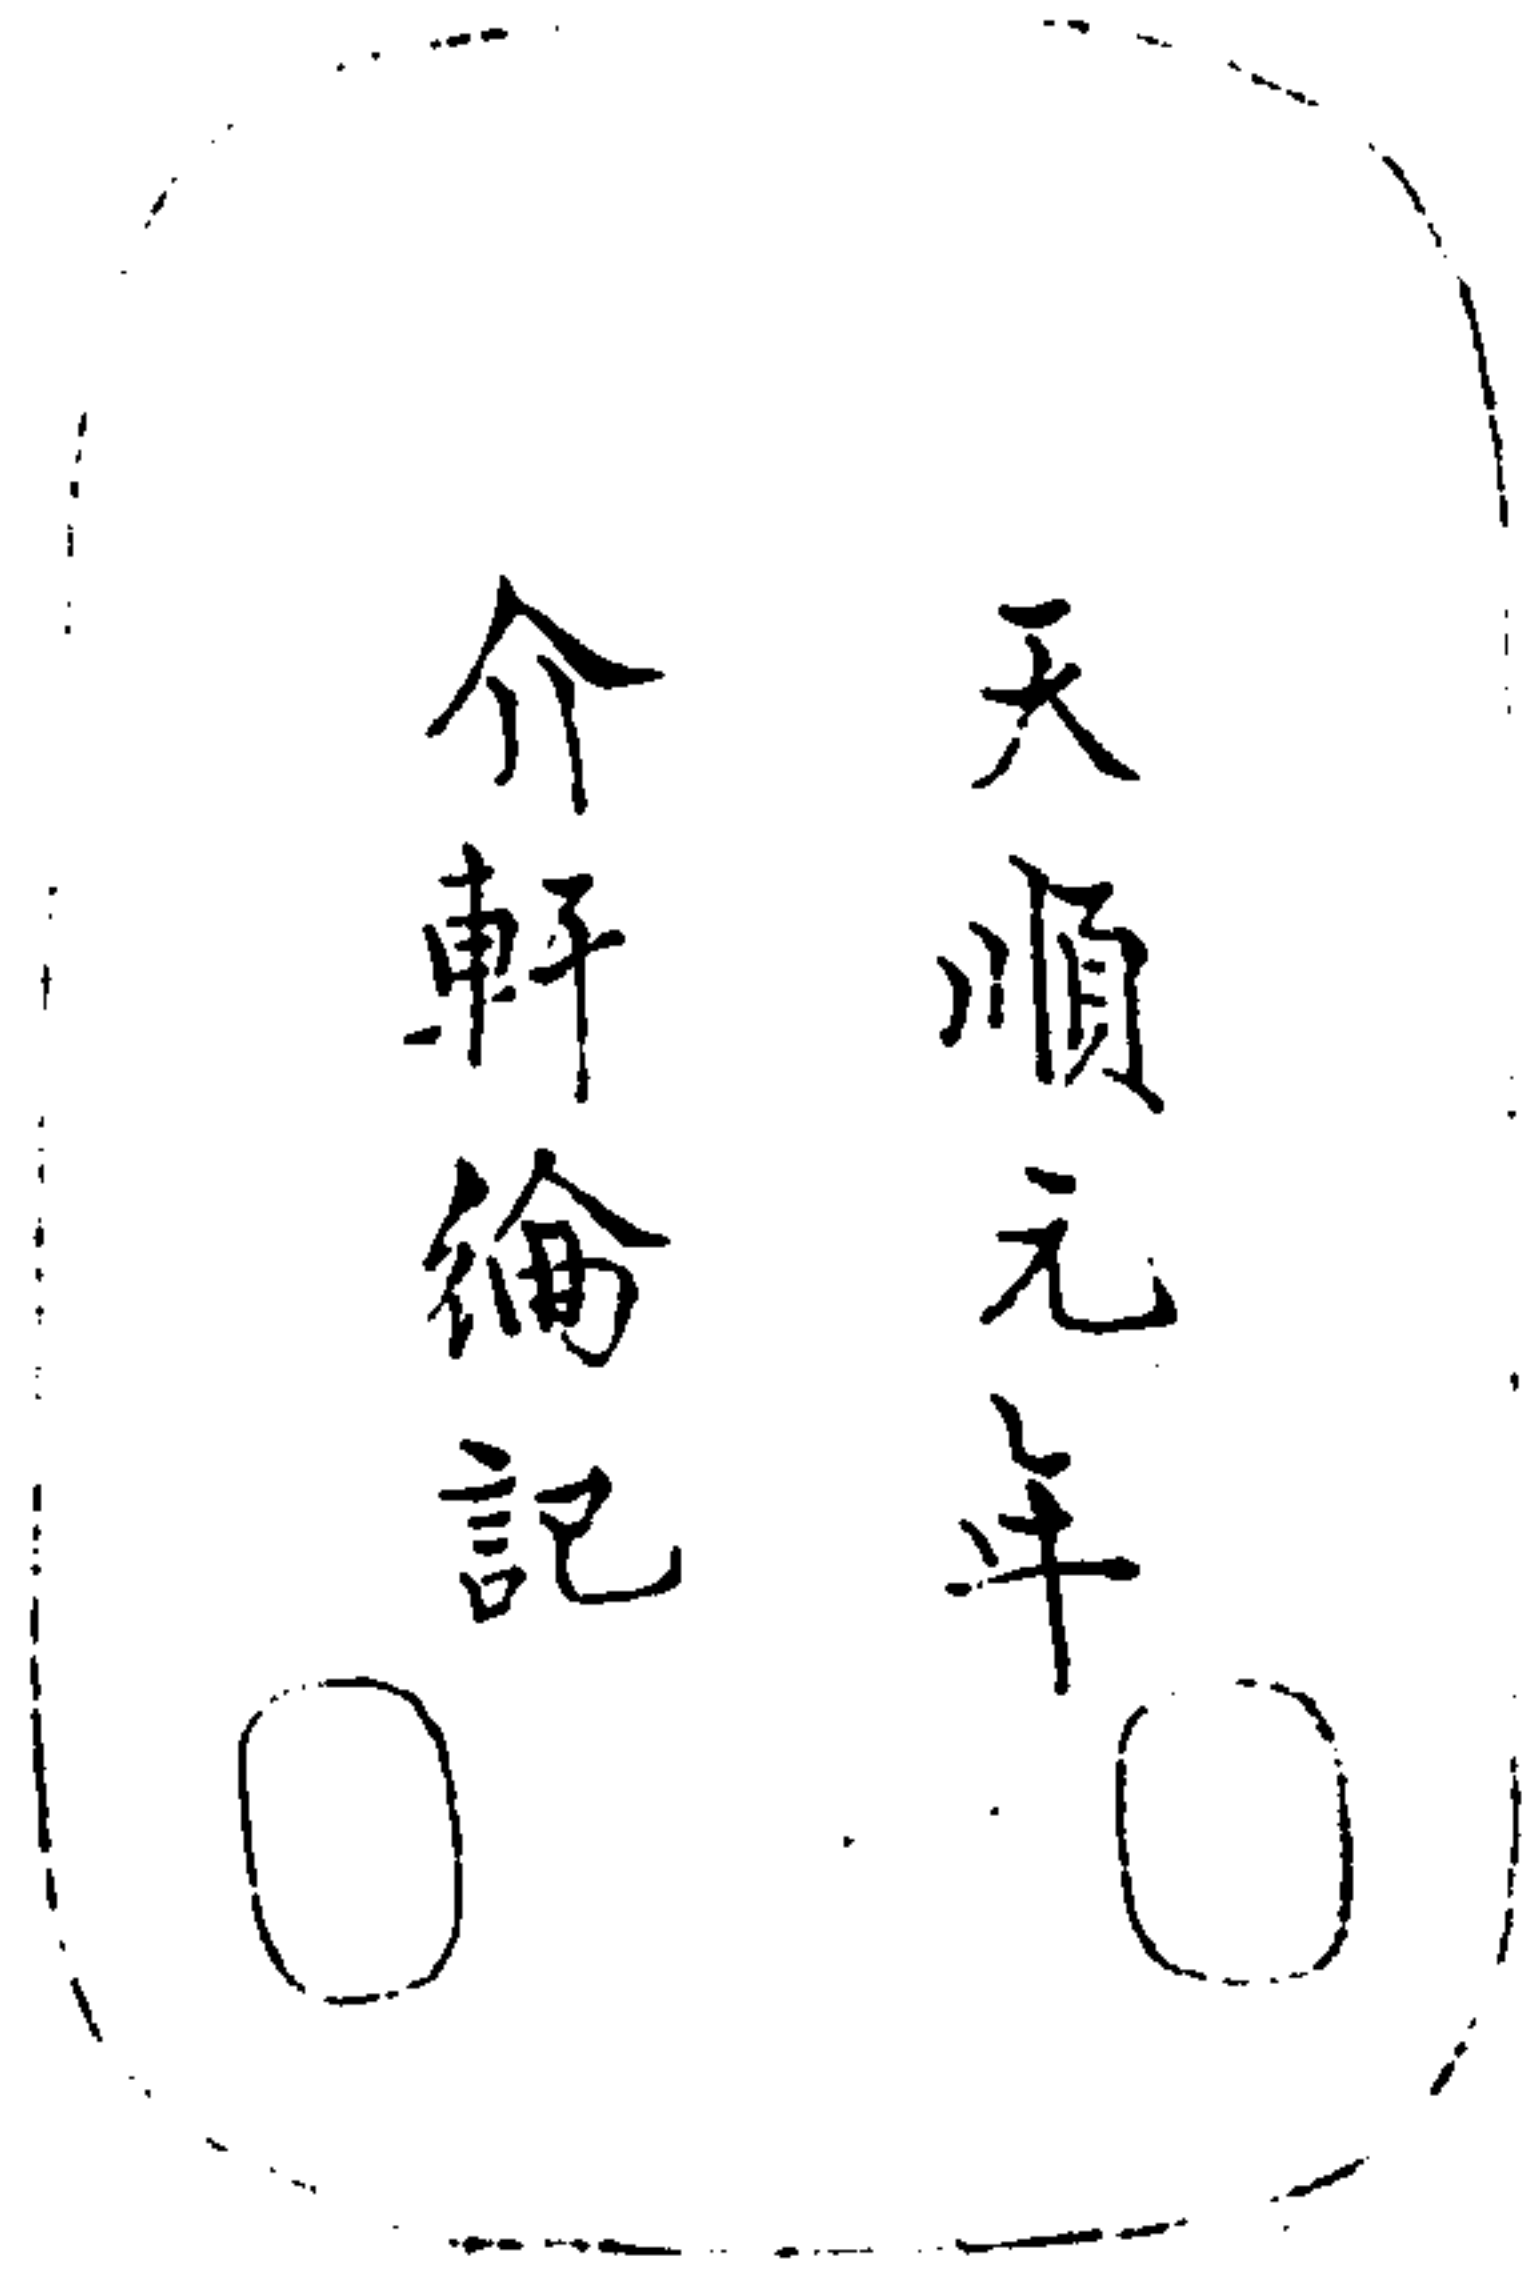 天順元年
介軒綸記